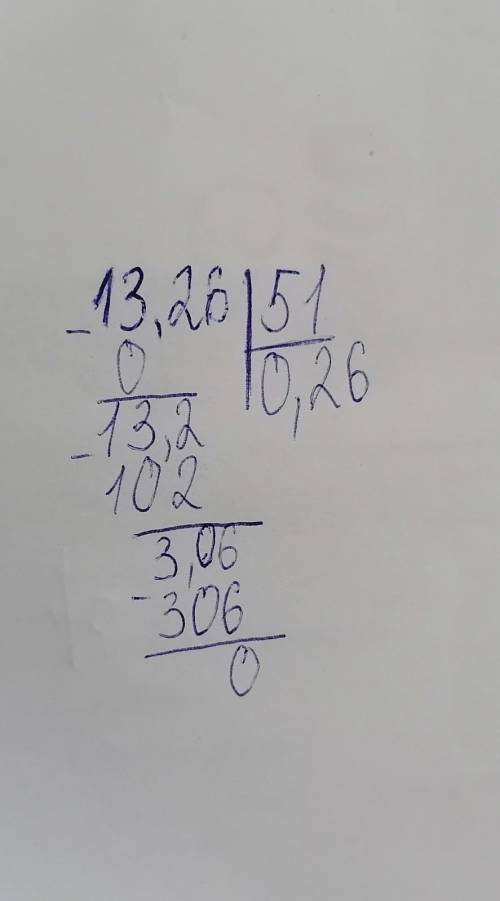 - 13,26 | 51
0 | 0,26
- 13,2
102
- 3,06
306
0